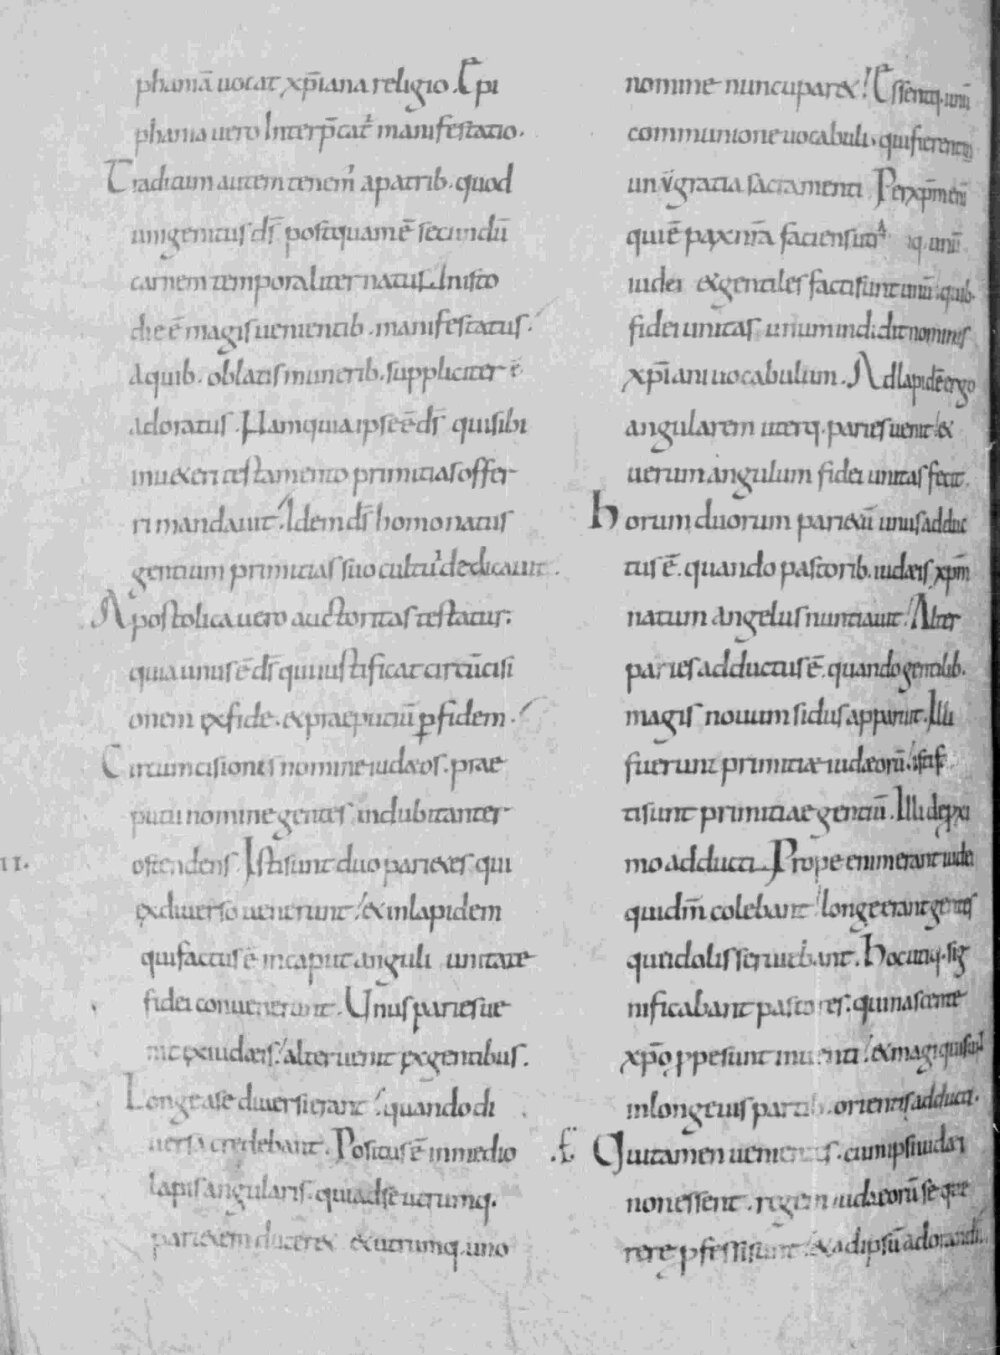 phaniā uocat xp̄iana religio. Epi
phania uero Interp̄cat᷒ manifestatio.
Traditum autem tenem᷒ apatrib. quod
unigenitus d̄s postquamē secundū
carnem temporaliter natus. Inisto
die ē magis uenientib. manifestatus.
Aquib. oblatis munerib. suppliciter ē
adoratus. Namquia ipse ē d̄s quisibi
inueteri testamento primitias offer
ri mandauit. Idem d̄s homo natus
gentium primitias suo cultui dedicauit.
Apostolica uero auctoritas testatur.
quia unus ē d̄s qui iustificat circūcisi
onem exfide. expraeputiū ꝑ fidem.
Circumcisionis nomine iudæos. prae
putii nomine gentes indubitanter
ostendens. Isti sunt duo parietes qui
II.
exdiuerso uenerunt. et inlapidem
quifactus ē incaput anguli unitate
fidei conuenerunt. Unus paries ue
nit exiudæis. alter uenit exgentibus.
Longe ase diuersi erant. quando di
uersa credebant. Positus ē inmedio
lapis angularis. quiadse utrumq.
parietem duceret et utrumq. uno
nomine nuncuparet. Essentq. unū
communione uocabuli. qui fierent
unū gratia sacramenti. Per xp̄m eni
qui ē pax nr̄a faciens utraq. unū
iudei et gentiles facti sunt unū. quib.
fidei unitas unum indidit nominis
xp̄iani uocabulum. Adlapidē ergo
angularem uterq. paries uenit. et
uerum angulum fidei unitas fecit.
Horum duorum parietū unus adduc
tus ē. quando pastorib. iudæis xp̄m
natum angelus nuntiauit. Alter
paries adductus ē. quando gentilib.
magis nouum sidus apparuit. Illi
fuerunt primitiæ iudæorū. isti
ti sunt primitiae gentiū. Illi deproxi
mo adducti. Prope enim erant iudei
quid̄m colebant. longe erant gentes
quiidolis seruiebant. Hoc utiq. sig
nificabant pastores. quinascente
xp̄o ꝓpe sunt inuenti. et magi qui sunt
inlongeuis partib. orientis adducti.
Qui tamen uenientes. cum ipsi iudæi
non essent. regem iudaeorū se que
rere ꝓfessi sunt. et adipsū adorandū